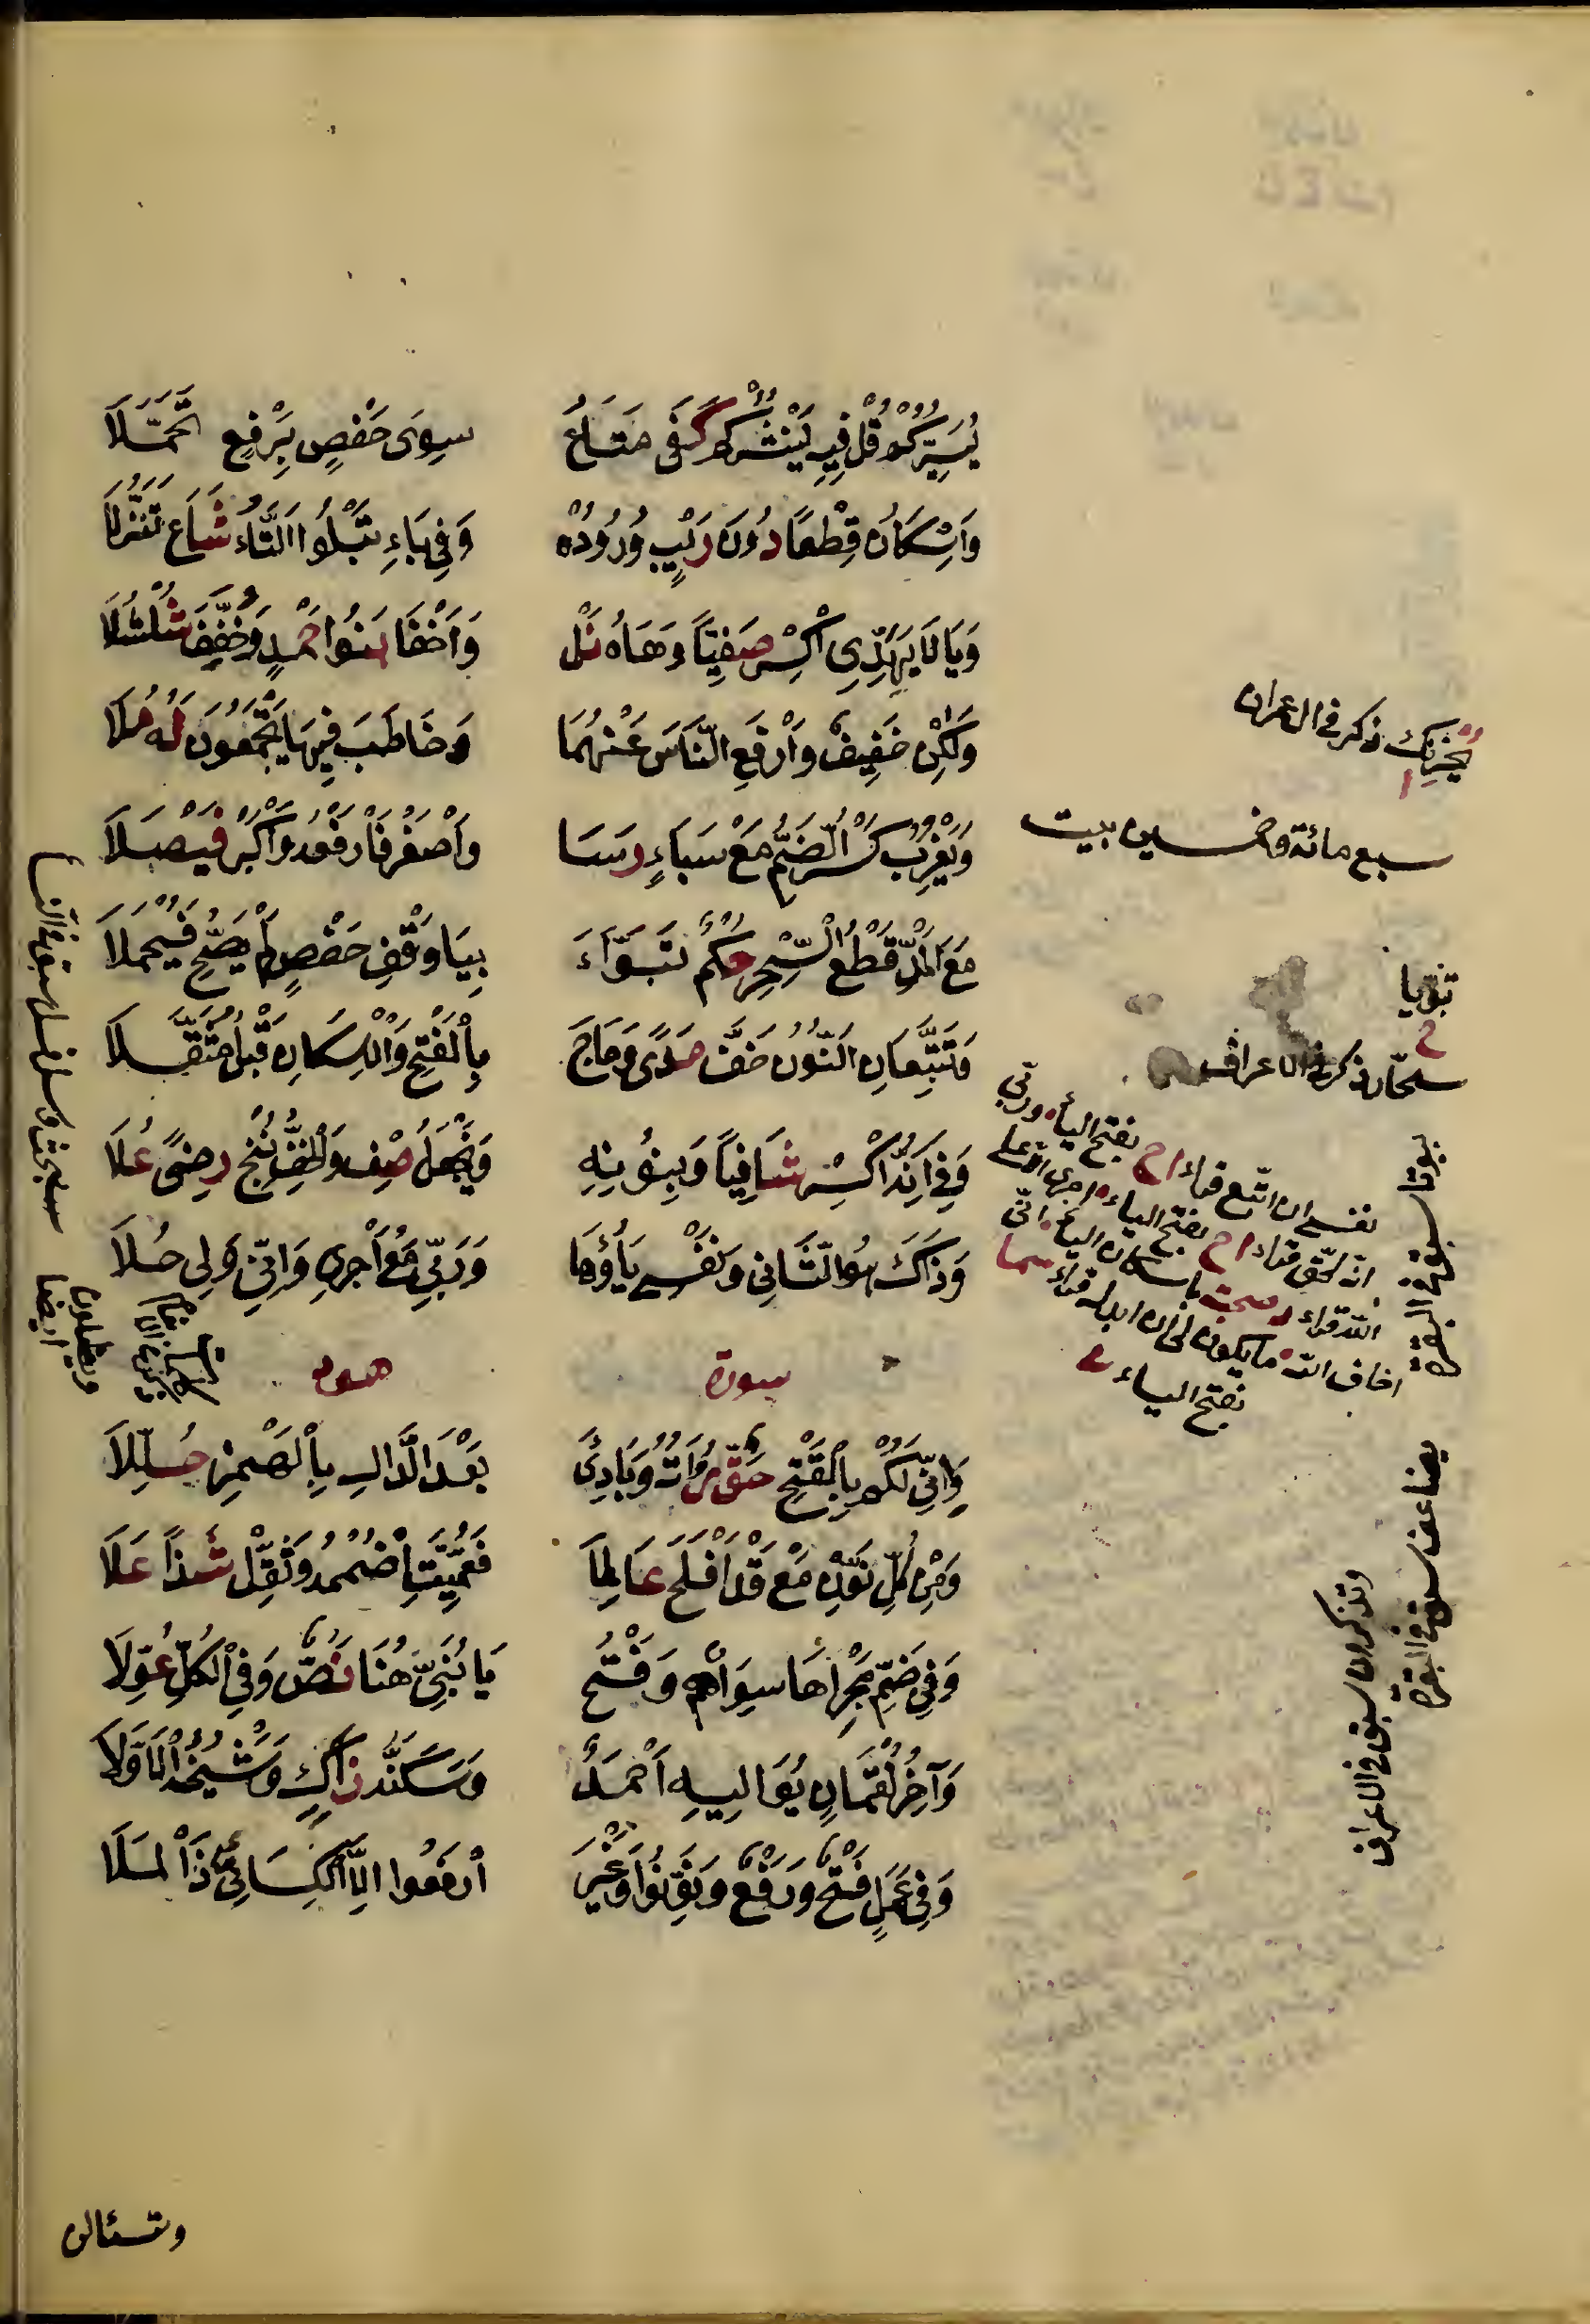 يُسَيِّرُكُمْ قُلْ فِيهِ يَنْشُرُكُمْ كَفَى مَتَاعَ سِوَى حَفْصٍ بِرَفْعٍ تَحَمَّلَا
وَاِسْكَانُ قِطْعًا دُونَ رَيْبٍ وُرُودُهُ وَفِى بَاءِ تَبْلُوا التَّاءُ شَاعَ تَنَزُّلَا
وَيَا لَا يَهِدِّى اكْسِرْ صَفِيًّا وَهَاهُ نَلْ وَاَخْفَا بَنُوا حَمْدٍ وَخُفِّفَ شُلْشُلَا
وَلٰكِنْ خَفِيفٌ وَارْفَعِ النَّاسَ عَنْهُمَا وَخَاطَبَ فِيهَا يَجْمَعُونَ لَهُ مُلَا
وَيَعْزُبُ كَسْرُ الضَّمِّ مَعْ سَبَاءٍ رَسَا وَاَصْغَرَ فَارْفَعْهُ وَاَكْبَرَ فَيْصَلَا
مَعَ الْمَدِّ قَطْعُ السِّحْرِ حُكْمٌ تَبَوَّءَا بِيَا وَقْفِ حَفْصٍ لَمْ يَصِحَّ فَيُحْمَلَا
وَتَتَّبِعَانِ النُّونُ خَفَّ مَدًى وَمَاجَ بِالْفَتْحِ وَالْاِسْكَانِ قَبْلُ مُثَقَّلَا
وَفِى اَنَّهُ اكْسِرْ شَافِيًا وَبِنُونِهِ وَيَجْعَلُ صِفْ وَالْخِفُّ نُنْجِ رِضًى عَلَا
وَذَاكَ هُوَ الثَّانِى وَنَفْسِى يَاؤُهَا وَرَبِّى مَعْ اَجْرِى وَاِنِّى وَلِى حُلَا
سورة هود
وَاِنِّى لَكُمْ بِالْفَتْحِ حَقُّ رُوَاتِهِ وَبَادِئَ بَعْدَ الدَّالِ بِالْهَمْزِ حُلِّلَا
وَمِنْ كُلِّ نَوِّنْ مَعْ قَدْ اَفْلَحَ عَالِمًا فَعُمِّيَتِ اضْمُمْهُ وَثَقِّلْ شَذًا عَلَا
وَفِى ضَمِّ مَجْرٰاهَا سِوَاهُمْ وَفَتْحُ يَا بُنَىِّ هُنَا نَصٌّ وَفِى الْكُلِّ عُوِّلَا
وَآخِرَ لُقْمَانٍ يُوَالِيهِ اَحْمَدٌ وَسَكَّنَهُ زَاكٍ وَشَيْخُهُ الْاَوَّلَا
وَفِى عَمَلٌ فَتْحٌ وَرَفْعٌ وَنَوِّنُوا وَغَيْرَ ارْفَعُوا اِلَّا الْكِسَائِىَّ ذَا الْمَلَا
يحزنك ذكر فى ال عمران
سبع مائة وخمسين بيت
تبويا
سحّار ذكر فى الاعراف
نفسى ان اتبع قراء ا ح بفتح الياء وربّى
انه لحق قراء ا ح بفتح الياء اجرى الا على
الله قراء صحبة باسكان الياء انّى
اخاف الله ما يكون لى ان ابدله قراء سما
بفتح الياء
بيوتا سبق فى البقرة
يضاعف سبق فى البقرة
وتذكرون سبق فى الاعراف
ايضا
وتسئالن